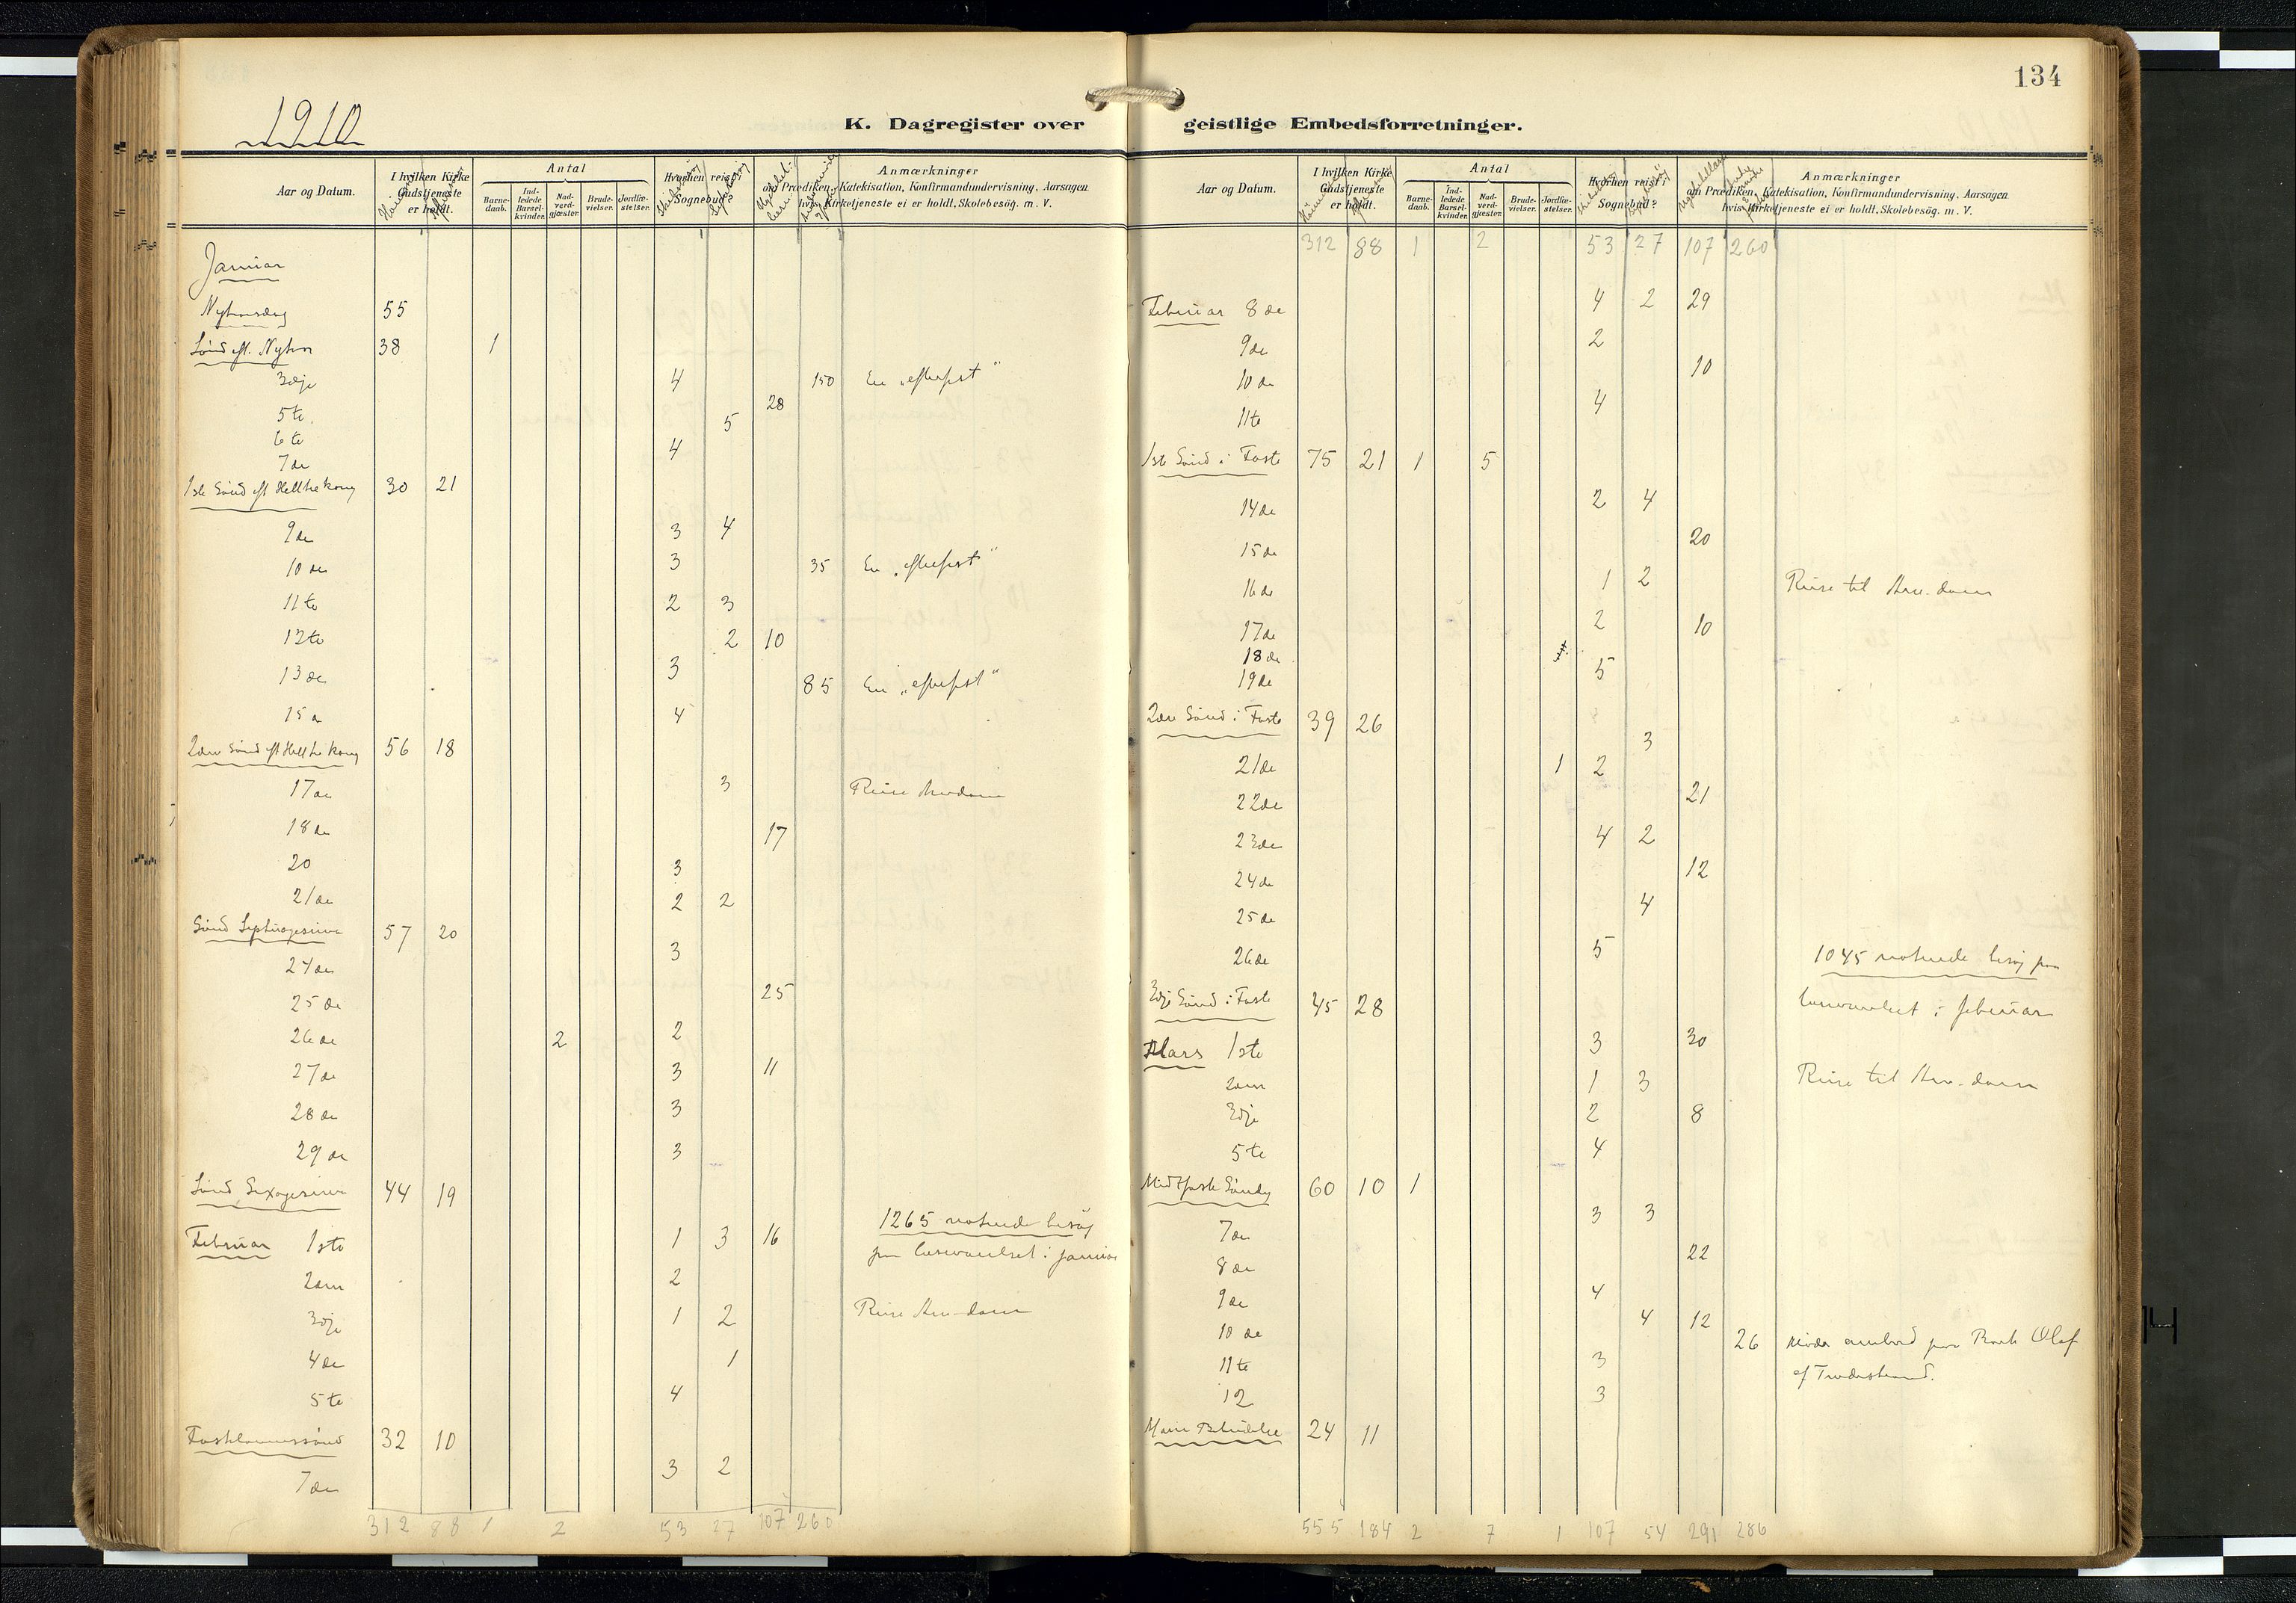 134
1910
K. Dagregister over geistlige Embedsforretninger.
Aar og Datum.
I hvilken Kirke Gudstjeneste er holdt.
Antal
Barne-daab.
Ind-ledede Barsel-kvinder.
Nad-verd-gjæster.
Brude-vielser.
Jordfæ-stelser.
Hvorhen reist i Sognebud?
Anmærkninger
om Prædiken, Katekisation, Konfirmandundervisning, Aarsagen
hvis Kirketjeneste ei er holdt, Skolebesög. m. V.
Januar
Nytaarsdag 55
Sønd eft. Nytaar 38 1
3dje 4 150 En „eftefest"
5te 28
6te 5
7de 4
1ste Sønd eft Helltrekong 30 21
9de 3 4
10de 3 35 En „eftefest"
11te 2 3
12te 2 10
13de 3 85 En „eftefest"
15de 4
2den Sønd eft Helltrekong 56 18
17de 3 Reise
18de 17
20 3
21de 2 2
Sønd Septuagesima 57 20
24de 3
25de 25
26de 2 2
27de 3 11
28de 3
29de 3
Sønd Sexagesima 44 19
1265 noterede besøg
Februar 1ste 1 3 16
paa læseværelset i januar
2den 2
3dje 1 2 Reise
4de 1
5te 4
Fastelavnssønd 32 10
7de 3 2
312 88 1 2 53 27 107 260
Aar og Datum.
I hvilken Kirke Gudstjeneste er holdt.
Antal
Barne-daab.
Ind-ledede Barsel-kvinder.
Nad-verd-gjæster.
Brude-vielser.
Jordfæ-stelser.
Hvorhen reist i Sognebud?
Anmærkninger
om Prædiken, Katekisation, Konfirmandundervisning, Aarsagen
hvis Kirketjeneste ei er holdt, Skolebesög. m. V.
312 88 1 2 53 27 107 260
Februar 8de 4 2 29
9de 2
10de 10
11te 4
1ste Sønd i Faste 75 21 1 5
14de 2 4
15de 20
16de 1 2 Reise til
17de 2 10
18de
19de 5
2den Sønd i Faste 39 26
3
21de 1 2
22de 21
23de 4 2
24de 12
25de 4
26de 5 1045 noterede besøg paa
3dje Sønd i Faste 45 28 læseværelset i februar
Mars 1ste 3 30
2den 1 3 Reise til
3dje 2 8
5te 4
Midtfaste Søndag 60 10 1
7de 3 3
8de 22
9de 4
10de 4 12
26 Møde ombord paa Bark Olaf
11te 3 af Tvedestrand.
12 3
Marie Budskabs 24 11
555 184 2 7 1 107 54 291 286